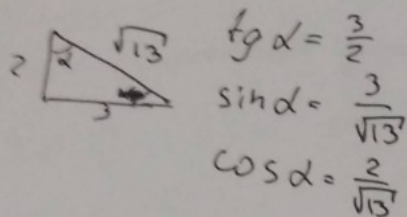 2 α √13
3
tg α = 3/2
sin α = 3/√13
cos α = 2/√13